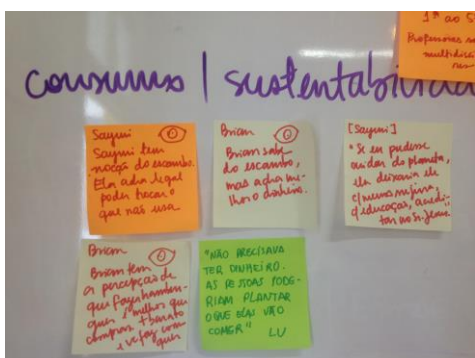 1º ao 5º
Professoras
multidisci
consumo | sustentabilidad
Sayuri
Sayuri tem
noção do escambo.
Ela acha legal
poder trocar o
que não usa
Brian
Brian sabe
do escambo,
mas acha me-
lhor o dinheiro.
[Sayuri]
"Se eu pudesse
cuidar do planeta,
eu deixaria ele
c/ menos sujeira,
c/ educação,
Brian
Brian tem
a percepção de
que fazer hambúr-
guer é melhor que
comprar + barato
e vc faz como
quer
"NÃO PRECISAVA
TER DINHEIRO.
AS PESSOAS PODE-
RIAM PLANTAR
O QUE ELAS VÃO
COMER"
LU